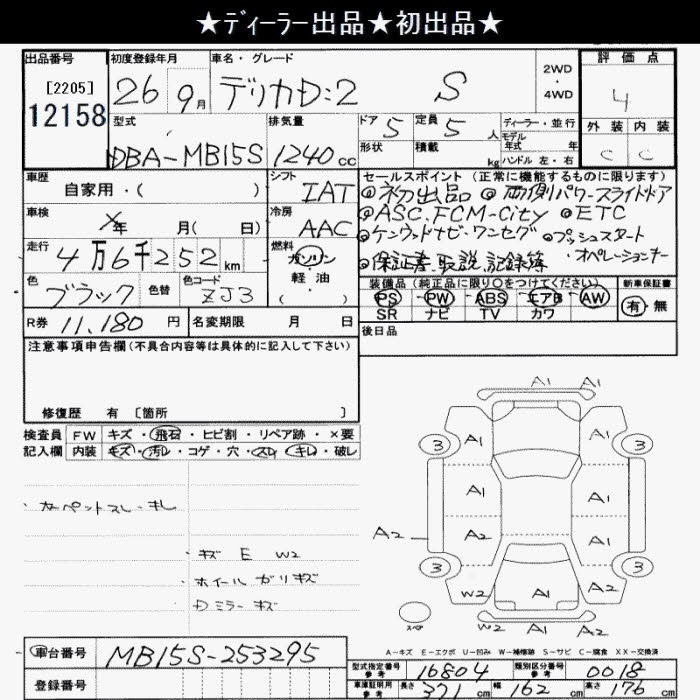 ★ディーラー出品★初出品★
出品番号
[2205]
12158
初度登録年月
26 9月
車名・グレード
デリカD:2 S
2WD
・
4WD
評価点
4
外装 内装
C C
型式
DBA-MB15S
排気量
1240cc
ドア 5
形状
定員 5人
積載 kg
ディーラー・並行
モデル
年式 年
ハンドル 左・右
車歴
自家用・( )
シフト
IAT
車検
年 月( 日)
冷房
AAC
走行
4万6千252km
燃料
ガソリン
・
軽油
( )
色
ブラック
色替
色コード
ZJ3
セールスポイント (正常に機能するものに限ります)
◎初出品 ◎両側パワースライドドア
◎ASC.FCM-City ◎ETC
◎ケンウッドナビ・ワンセグ ◎プッシュスタート
・オペレーションキー
◎保証書・取説・記録簿
装備品 (純正品に限り○をつけてください)
PS PW ABS エアB AW
SR ナビ TV カワ
新車保証書
有・無
R券 11,180 円
名変期限 月 日
後日品
注意事項申告欄(不具合内容等は具体的に記入して下さい)
修復歴 有 [箇所 ]
検査員
記入欄
FW キズ・飛石・ヒビ割・リペア跡・×要
内装 キズ・汚レ・コゲ・穴・スレ・キレ・破レ
・カーペットスレ・キレ
・キズ E W2
・ホイールガリキズ
・Dミラーキズ
A1 A1
3 A1 A1 3
A1 A1
A2 A2 A1
3 3
W2 A1 A2
W2 A1 A2
スペア
A-キズ E-エクボ U-凹み W-補修跡 S-サビ C-腐食 XX-交換済
車台番号
MB15S-253295
登録番号
型式指定番号
参考
16804
類別区分番号
参考
0018
車庫証明用
参考
長さ 371cm 幅 162cm 高さ 176cm